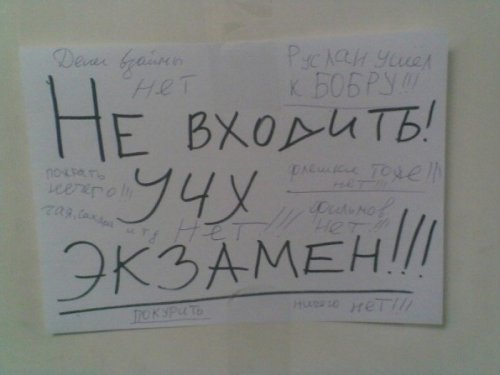 Денег взаймы
нет
Руслан ушел
к БОБРУ!!!
НЕ ВХОДИТЬ!
пожрать
нечего!!!
флешки тоже!!!
нет!!!
УЧУ
чая, сахара и тд
нет!!!
фильмов
нет!!!
ЭКЗАМЕН!!!
ПОКУРИТЬ
ничего нет!!!